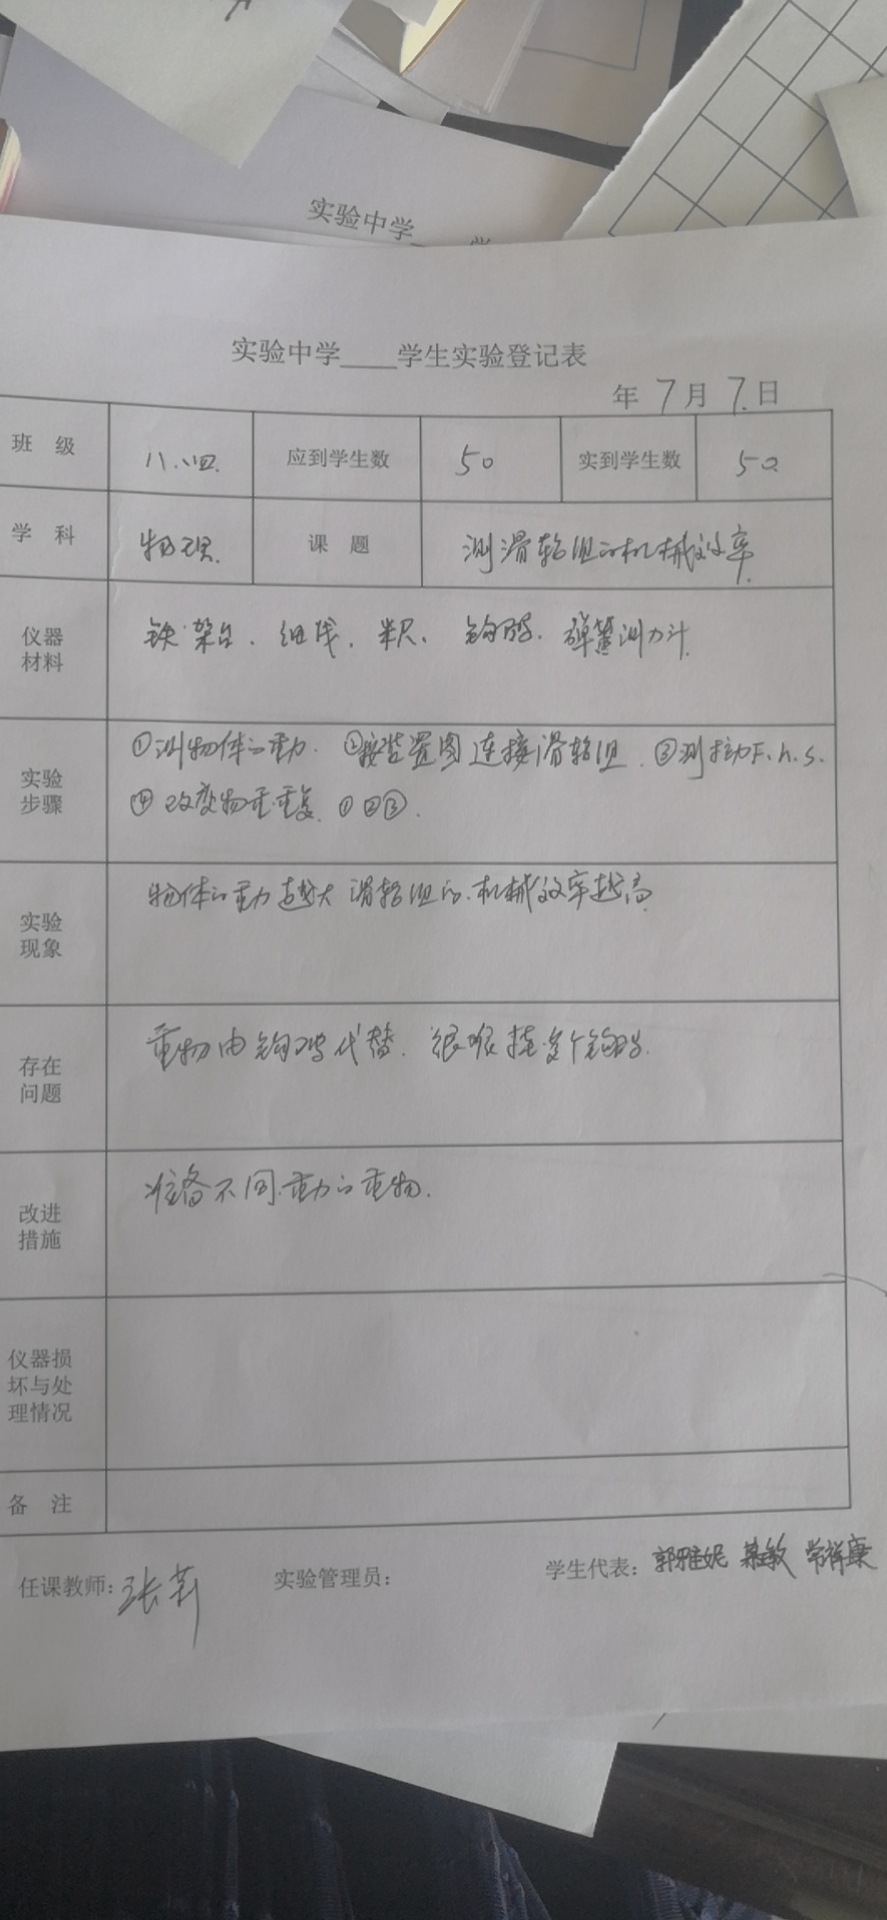 实验中学
实验中学____学生实验登记表
年 7月 7日
班 级 八.四. 应到学生数 50 实到学生数 50
学 科 物理. 课 题 测滑轮组的机械效率
仪器材料 铁架台、细线、米尺、钩码、弹簧测力计
实验步骤 ①测物体的重力. ②按装置图连接滑轮组. ③测拉力F.h.s.
④改变物重.重复.①②③.
实验现象 物体的重力越大滑轮组的.机械效率越高
存在问题 重物由钩码代替.
改进措施 准备不同重力的重物.
仪器损坏与处理情况
备 注
任课教师: 张 实验管理员: 学生代表: 郭雅妮 敏 常祥康